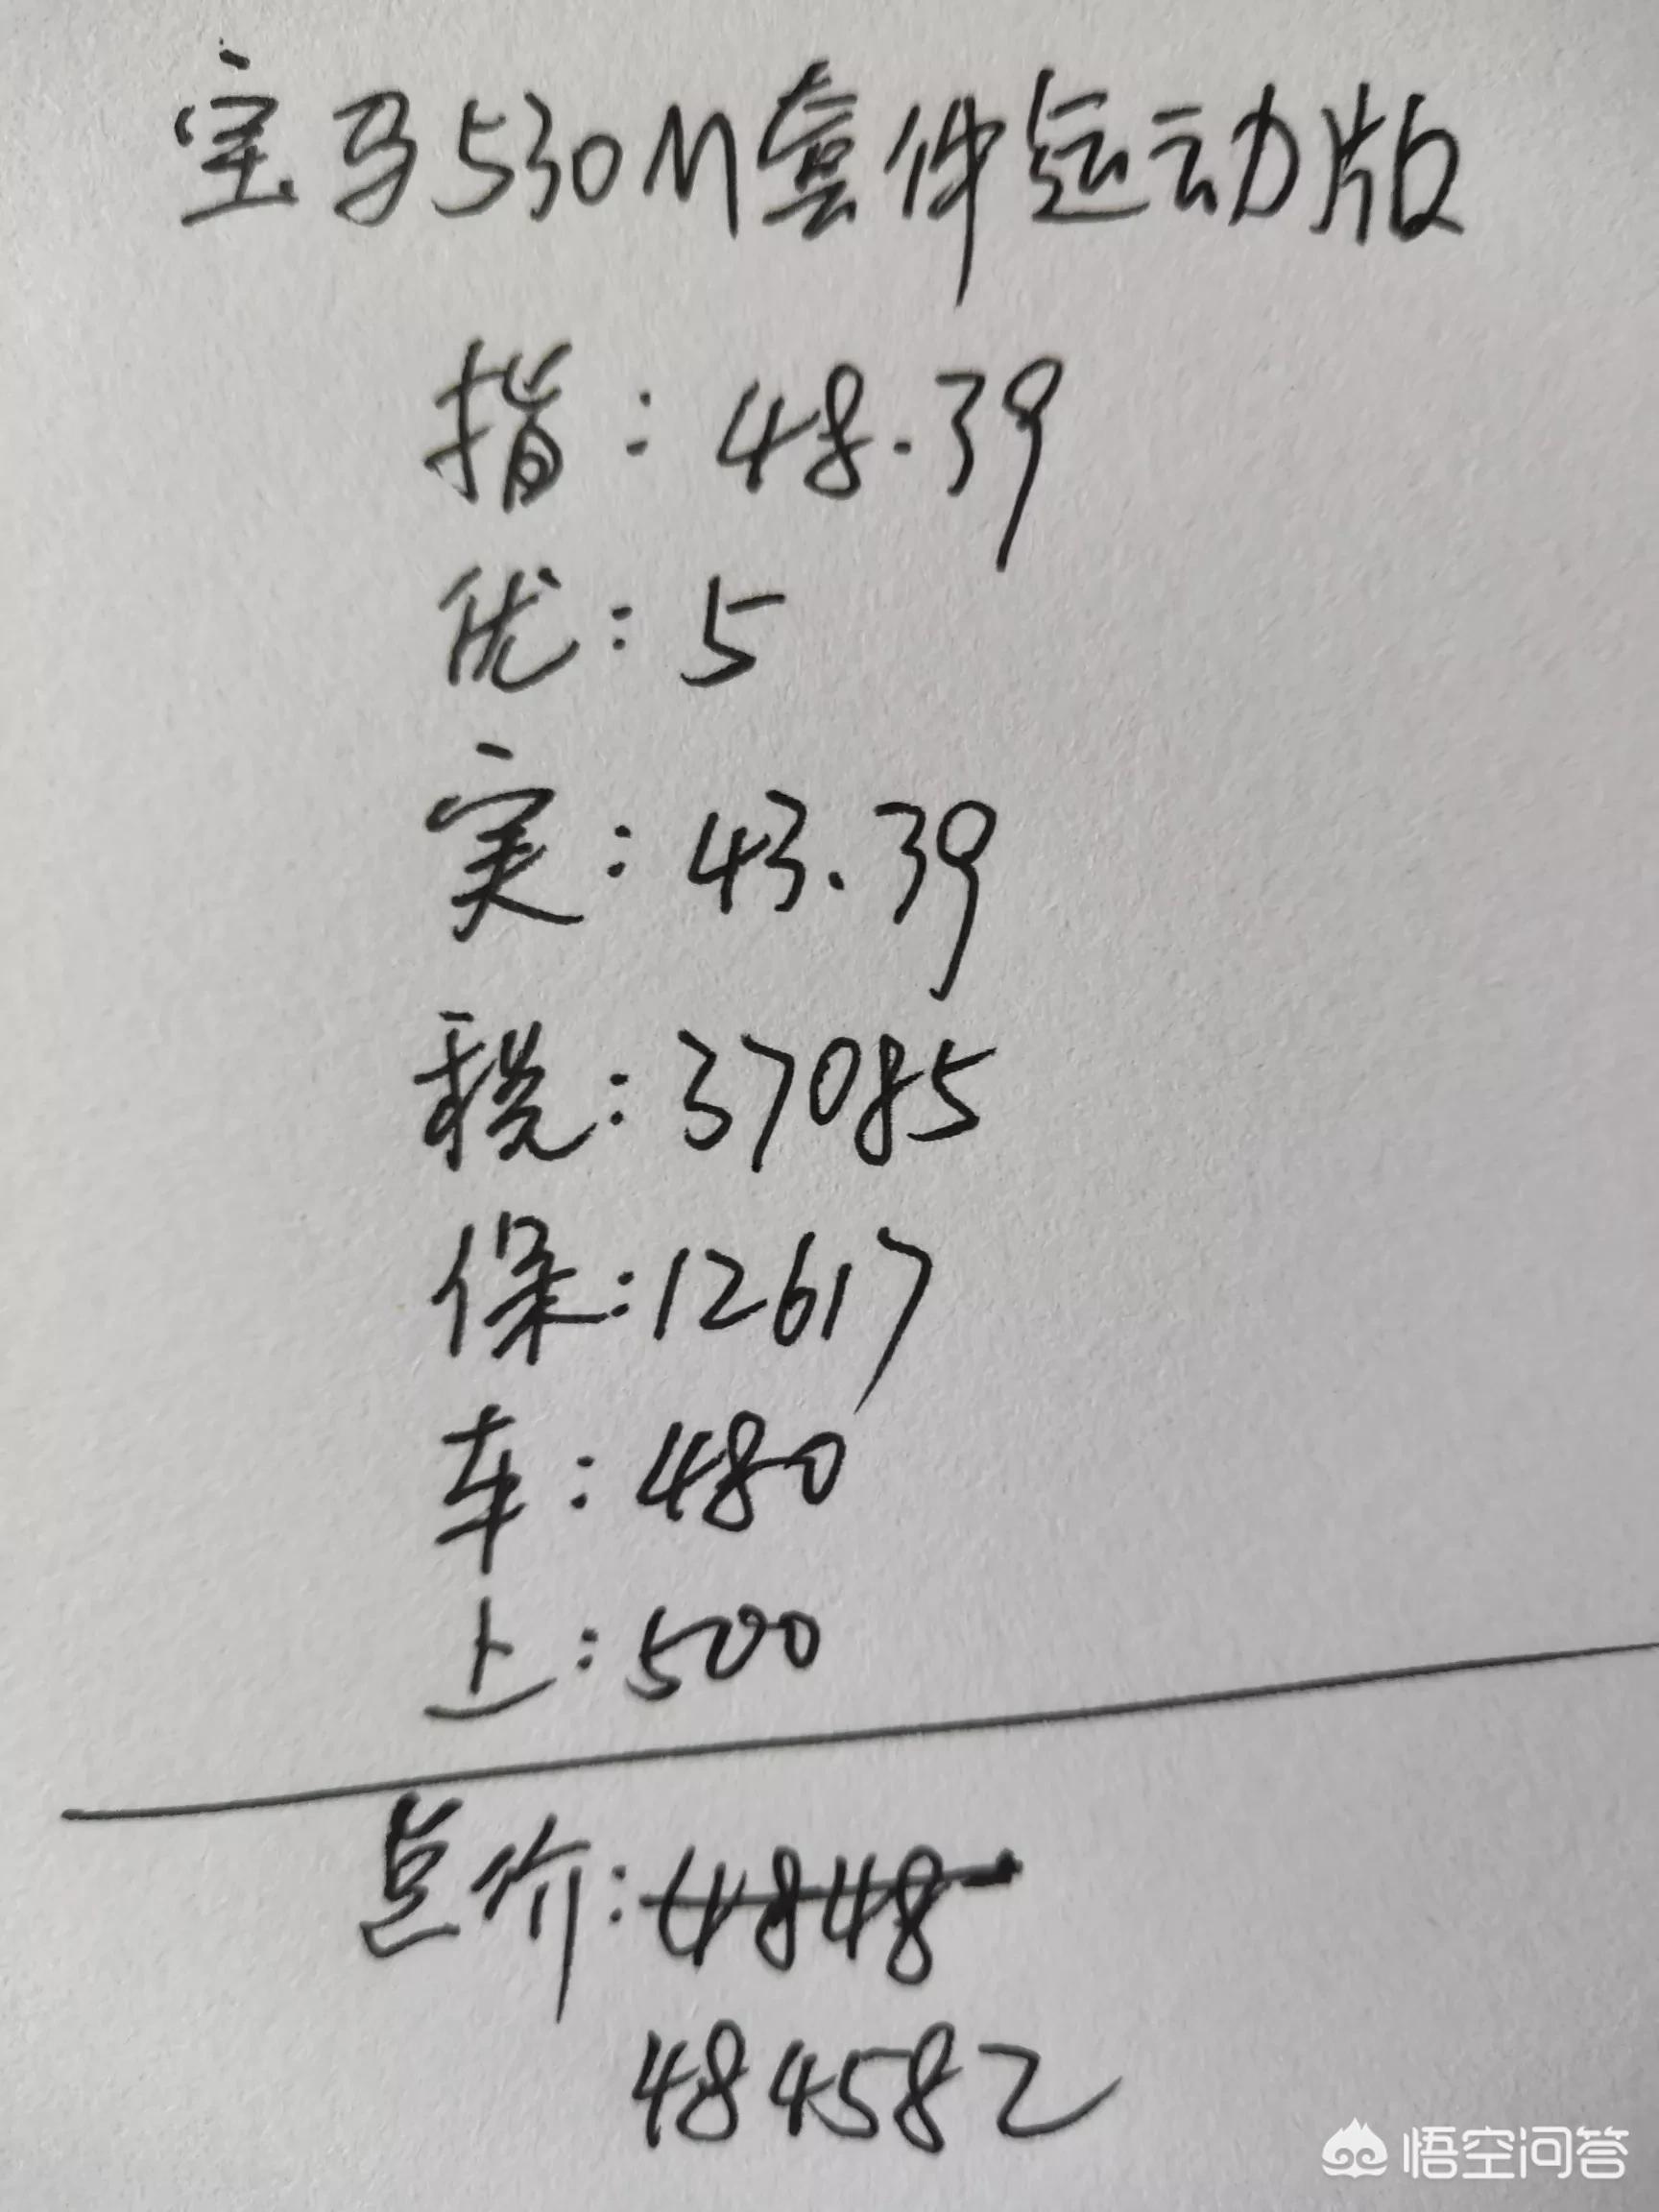 宝马530M套件运动版
指:48.39
优:5
实:43.39
税:37085
保:12617
车:480
上:500
总价:4848
484582
悟空问答